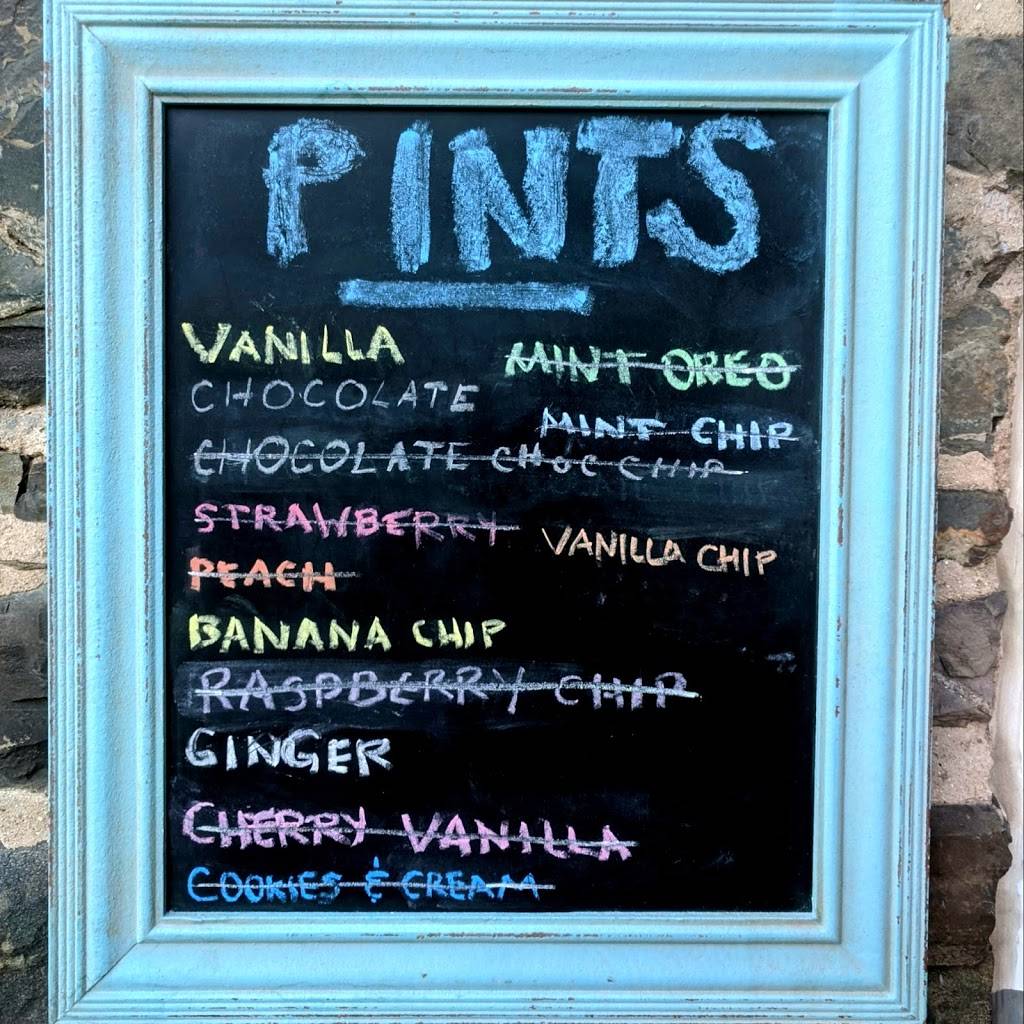 PINTS
VANILLA
MINT OREO
CHOCOLATE
MINT CHIP
CHOCOLATE CHOC CHIP
STRAWBERRY
VANILLA CHIP
PEACH
BANANA CHIP
RASPBERRY CHIP
GINGER
CHERRY VANILLA
COOKIES & CREAM